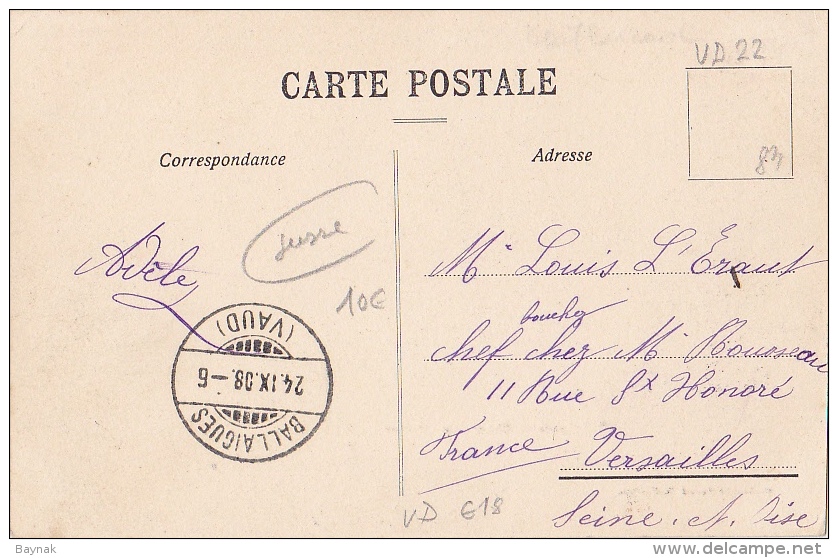 VD 22
CARTE POSTALE
83
Correspondance
Adresse
Adèle
susse
10€
Mr Louis L'Eraut
boucher
chef chez Mr Rousseau
11 Rue St Honoré
France Versailles
Seine. et. Oise
BALLAIGUES
24.IX.08.–6
(VAUD)
VD E18
Baynak
www.delcampe.net